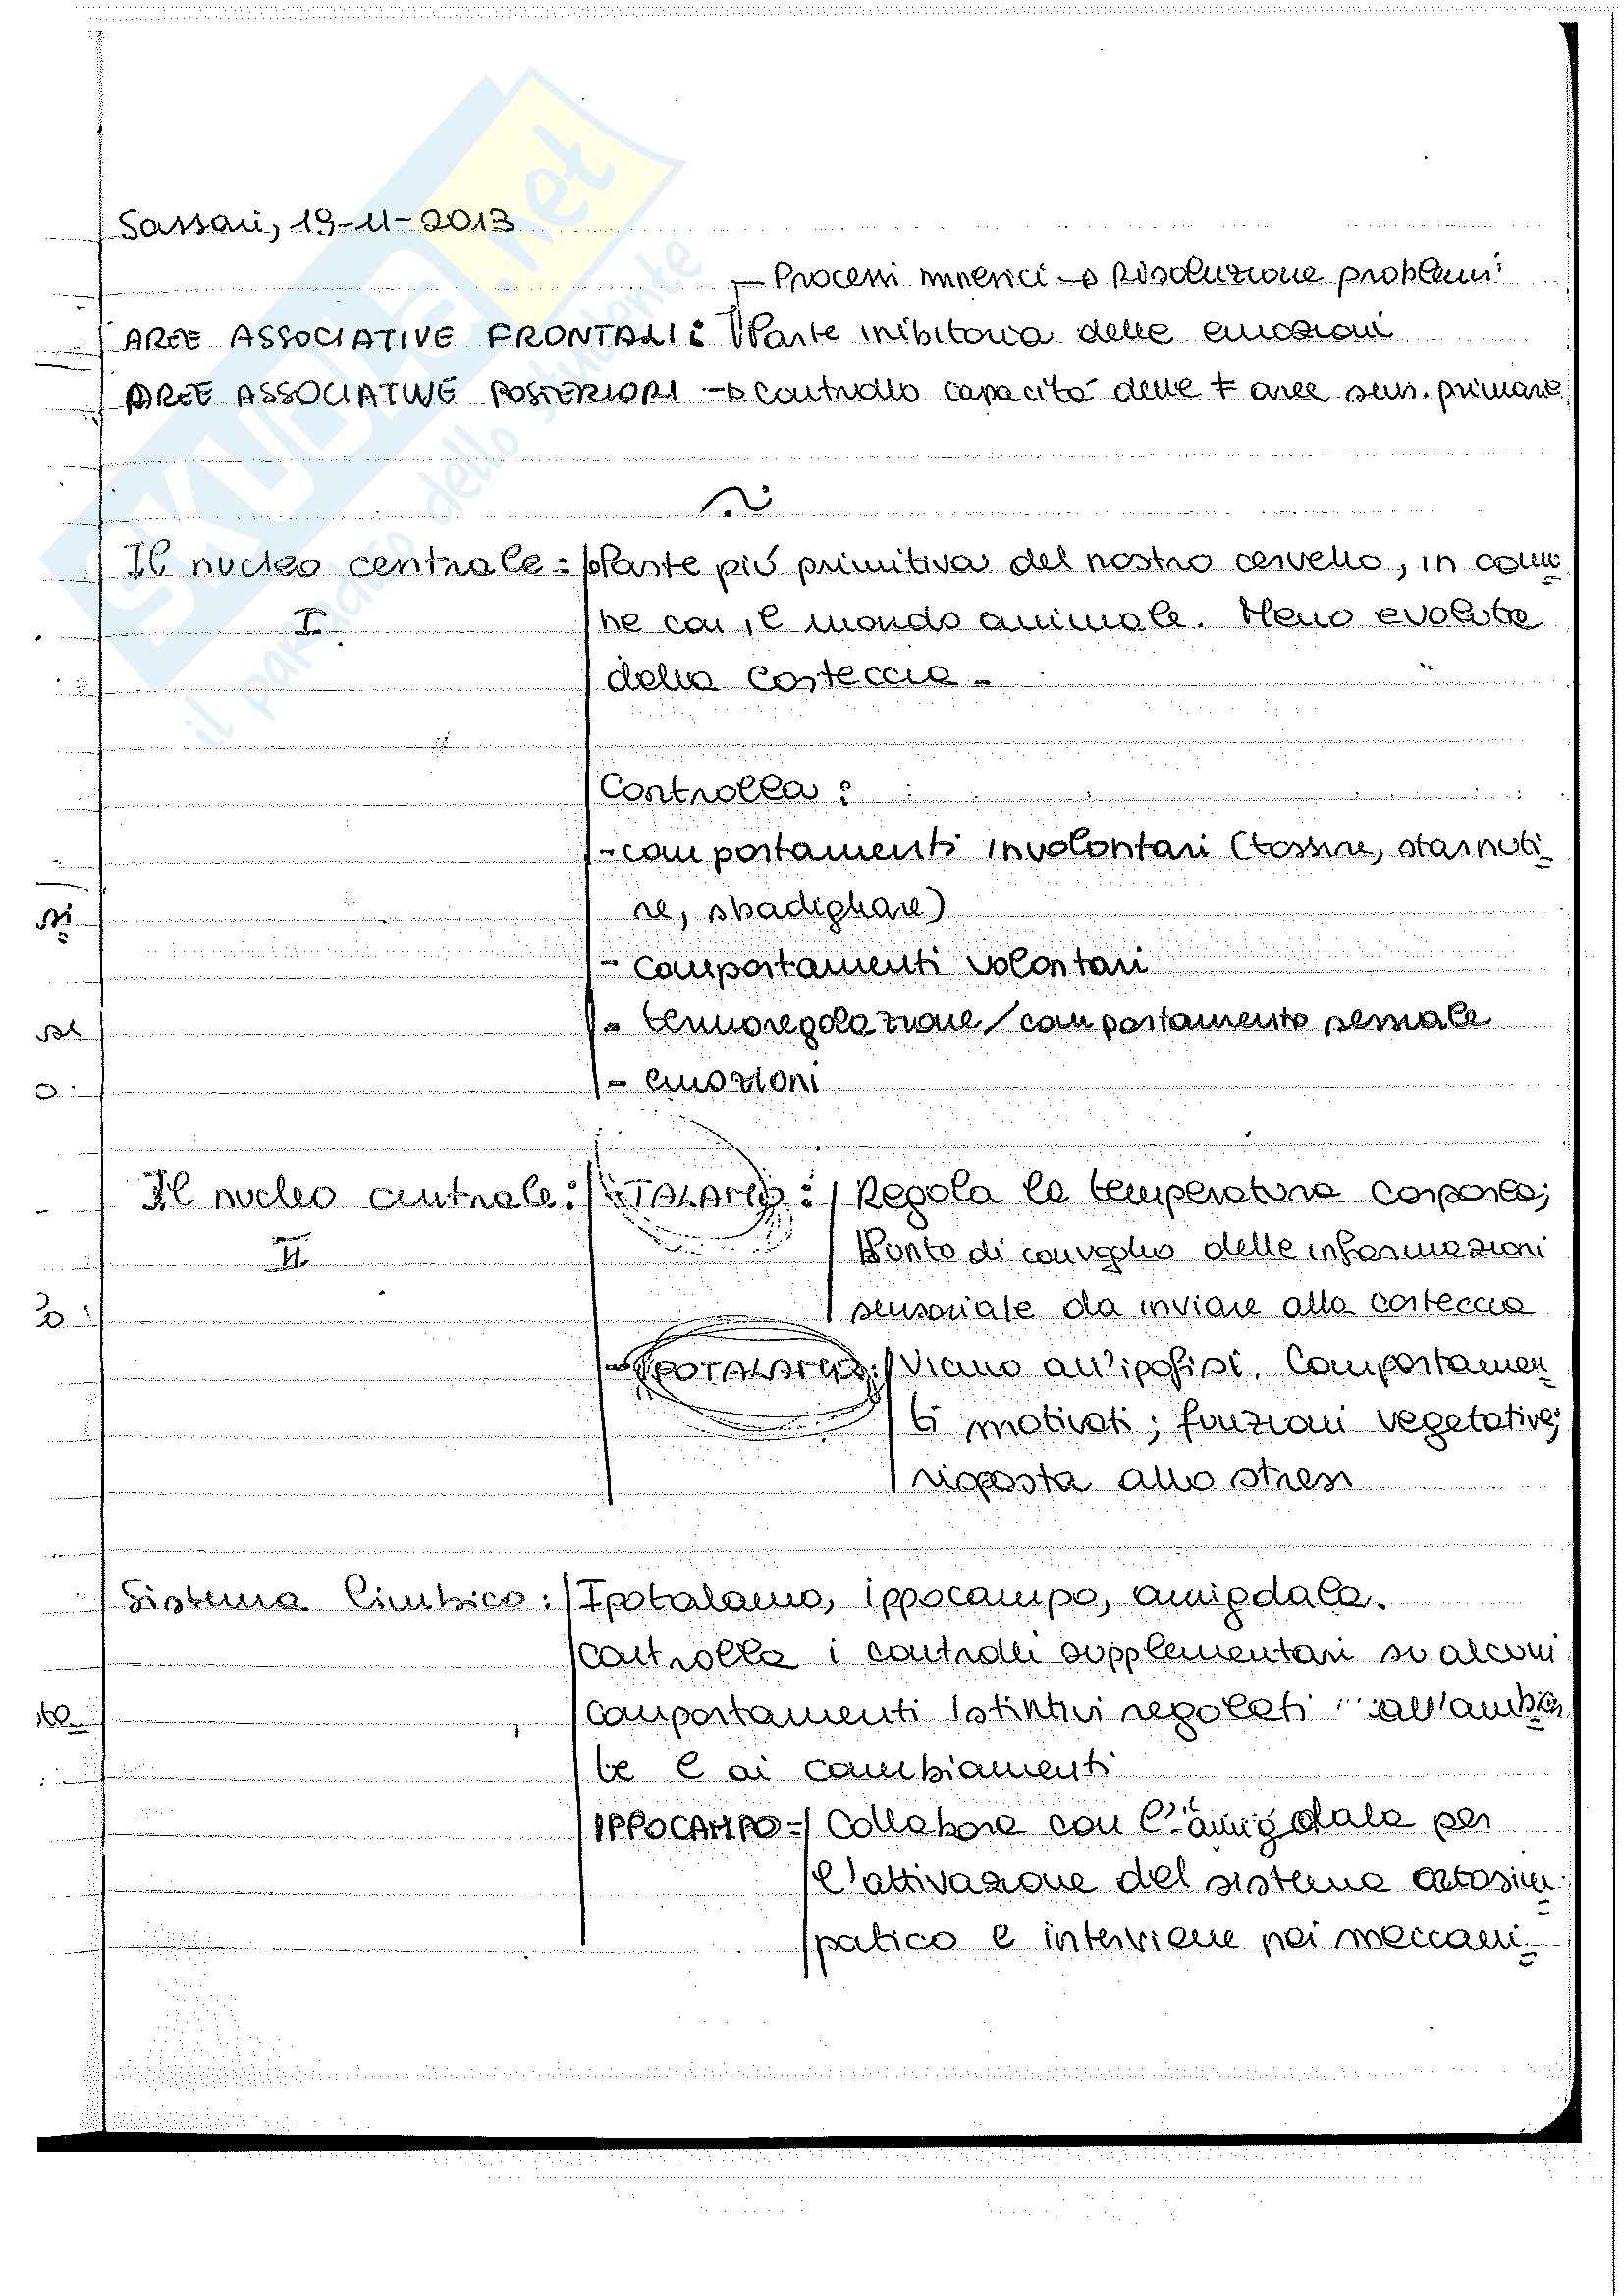 Sassari, 19-11-2013
Processi mnesici → Risoluzione problemi
AREE ASSOCIATIVE FRONTALI: Parte inibitoria delle emozioni
AREE ASSOCIATIVE POSTERIORI → controllo capacità delle ≠ aree sens. primarie
Il nucleo centrale: Parte più primitiva del nostro cervello, in comu=
I ne con il mondo animale. Meno evoluta
della corteccia.
Controlla:
-comportamenti involontari (tossire, starnuti=
si re, sbadigliare)
- comportamenti volontari
- termoregolazione/comportamento sessuale
- emozioni
Il nucleo centrale: TALAMO: Regola la temperatura corporea;
II Punto di convoglio delle informazioni
sensoriale da inviare alla corteccia
- IPOTALAMO: Vicino all'ipofisi. Comportamen=
ti motivati; funzioni vegetative;
risposta allo stress
Sistema limbico: Ipotalamo, ippocampo, amigdala.
Controlla i controlli supplementari su alcuni
comportamenti istintivi regolati all'ambien=
te e ai cambiamenti
IPPOCAMPO= Collabora con l'amigdala per
l'attivazione del sistema ortosim=
patico e interviene nei meccani=
SKUOLA.net
il paradiso dello studente